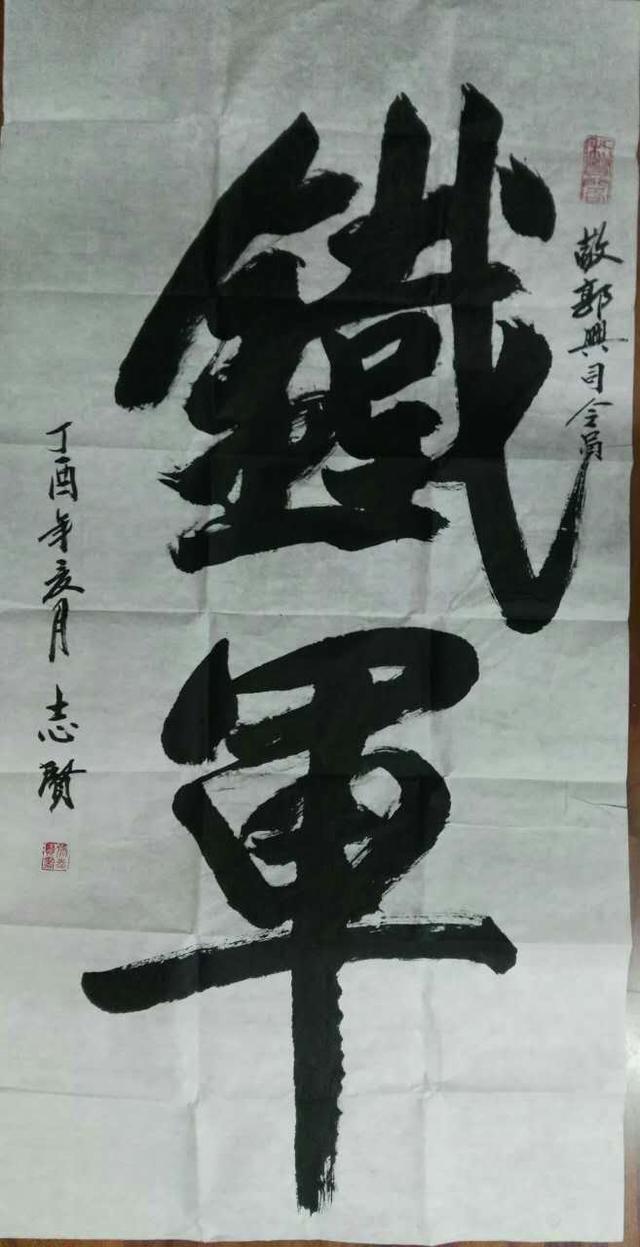 敬郭興司令員
鐵軍
丁酉年亥月 志賢